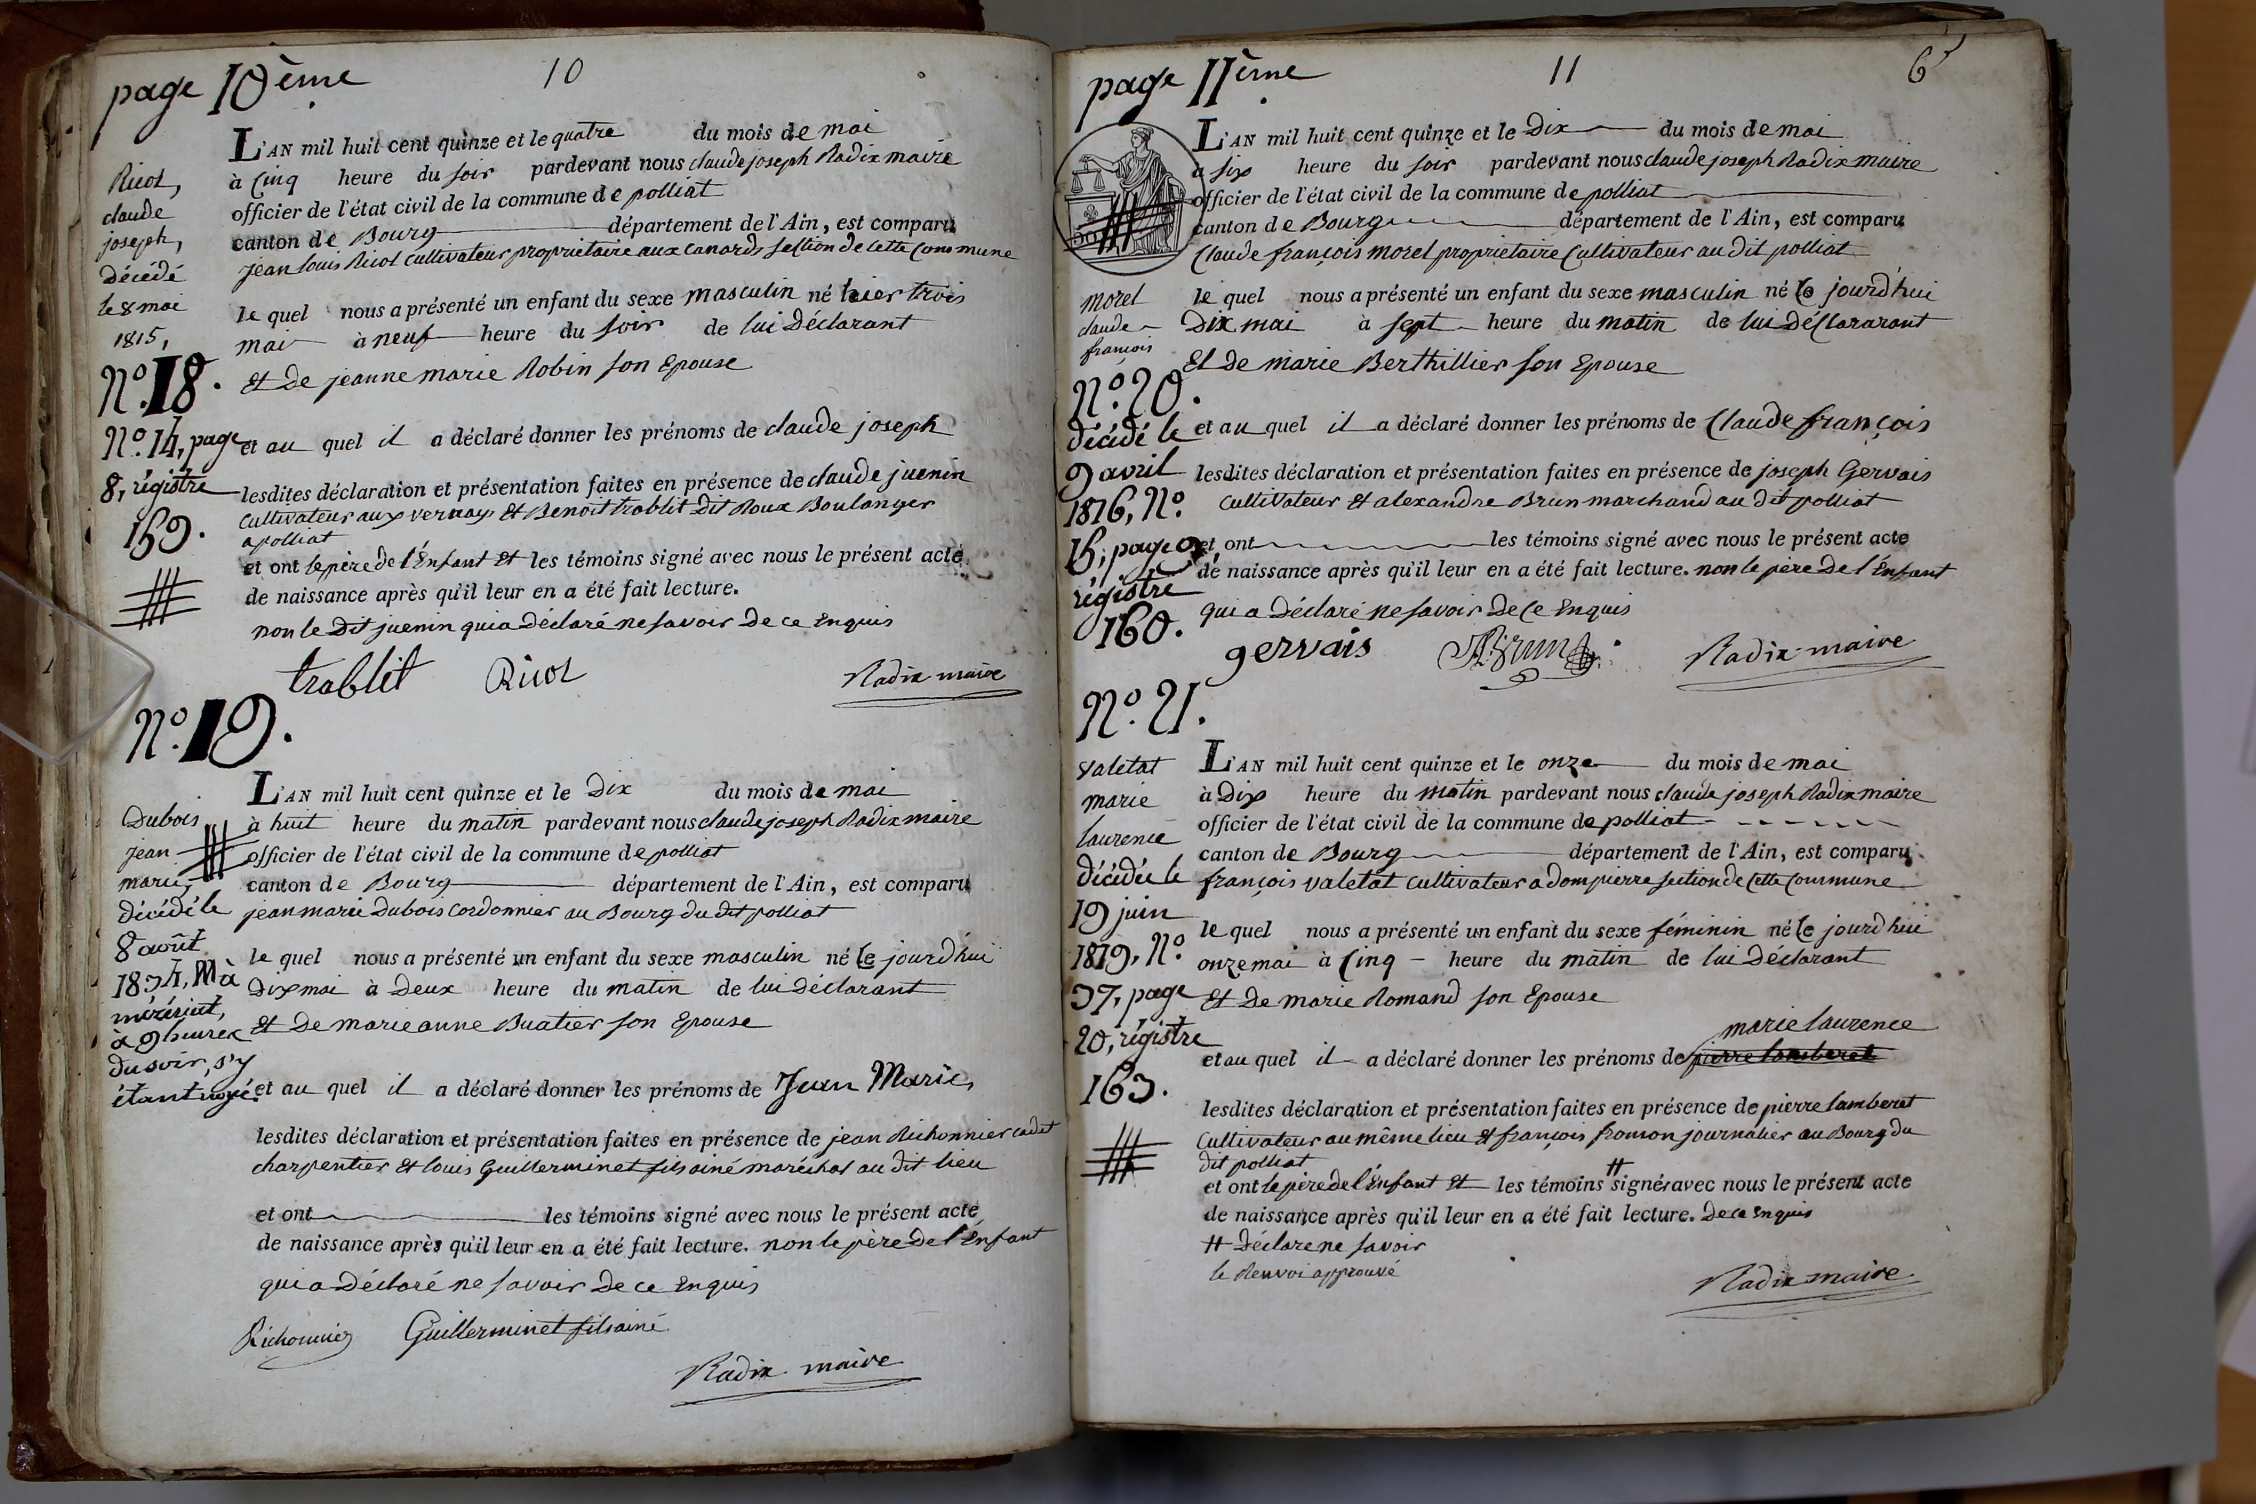 page 10ème
10
L'AN mil huit cent quinze et le quatre du mois de mai
à Cinq heure du soir pardevant nous claude joseph Radix maire
officier de l'état civil de la commune de polliat
canton de Bourg département de l'Ain, est comparu
jean louis Ricol cultivateur proprietaire aux Canards section de cette Commune
le quel nous a présenté un enfant du sexe masculin né hier trois
mai à neuf heure du soir de lui Déclarant
et de jeanne marie Robin son Epouse
et au quel il a déclaré donner les prénoms de claude joseph
lesdites déclaration et présentation faites en présence de claude juenin
cultivateur aux vernays et Benoit trablit dit Roux Boulanger
a polliat
et ont le père de l'Enfant et les témoins signé avec nous le présent acte
de naissance après qu'il leur en a été fait lecture.
non le Dit juenin qui a Déclaré ne savoir De ce Enquis
trablit Ricol Radix maire
Ricol,
claude
joseph,
Décédé
le 8 mai
1815,
N.º 18.
N.º 14, page
8, régistre
159.
N.º 19.
L'AN mil huit cent quinze et le Dix du mois de mai
à huit heure du matin pardevant nous claude joseph Radix maire
officier de l'état civil de la commune de polliat
canton de Bourg département de l'Ain, est comparu
jean marie Dubois Cordonnier au Bourg du dit polliat
le quel nous a présenté un enfant du sexe masculin né le jourd'hui
Dix mai à Deux heure du matin de lui déclarant
et De marie anne Buatier son Epouse
et au quel il a déclaré donner les prénoms de Jean Marie,
lesdites déclaration et présentation faites en présence de jean Richonnier cadet
charpentier et louis Guillerminet fils ainé maréchal au dit lieu
et ont les témoins signé avec nous le présent acte
de naissance après qu'il leur en a été fait lecture. non le père de l'Enfant
qui a Déclaré ne savoir De ce Enquis
Richonnier Guillerminet fils ainé
Radix maire
Dubois
jean
marie,
décédé le
8 août
1834, à
mézériat,
à 9 heures
du soir, s'y
étant noyé.
page 11ème
11
6
L'AN mil huit cent quinze et le Dix du mois de mai
à six heure du soir pardevant nous claude joseph Radix maire
officier de l'état civil de la commune de polliat
canton de Bourg département de l'Ain, est comparu
Claude françois morel proprietaire Cultivateur au dit polliat
le quel nous a présenté un enfant du sexe masculin né le jourd'hui
Dix mai à sept heure du matin de lui Déclararant
Et de marie Berthillier son Epouse
et au quel il a déclaré donner les prénoms de Claude françois
lesdites déclaration et présentation faites en présence de joseph Gervais
cultivateur et alexandre Brun marchand au dit polliat
et ont les témoins signé avec nous le présent acte
de naissance après qu'il leur en a été fait lecture. non le père de l'Enfant
qui a Déclaré ne savoir De Ce Enquis
gervais A. Brun Radix maire
morel
claude
françois
N.º 20.
décédé le
9 avril
1816, N.º
15, page 9,
régistre
160.
N.º 21.
L'AN mil huit cent quinze et le onze du mois de mai
à Dix heure du matin pardevant nous claude joseph Radix maire
officier de l'état civil de la commune de polliat
canton de Bourg département de l'Ain, est comparu
françois valetat cultivateur a dompierre section de Cette Commune
le quel nous a présenté un enfant du sexe féminin né le jourd'hui
onze mai à Cinq heure du matin de lui Déclarant
et De marie Romand son Epouse
marie laurence
et au quel il a déclaré donner les prénoms de pierre lamberet
lesdites déclaration et présentation faites en présence de pierre lamberet
Cultivateur au même lieu et françois fromon journalier au Bourg du
dit polliat
et ont le père de l'Enfant et les témoins # signés avec nous le présent acte
de naissance après qu'il leur en a été fait lecture. De ce Enquis
# Déclare ne savoir
le Renvoi approuvé
Radix maire
valetat
marie
laurence
décédée le
19 juin
1819, N.º
37, page
20, régistre
163.